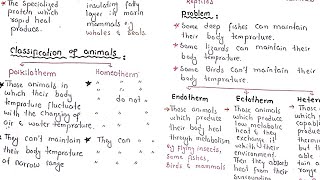 The Specialized
protein which
rapid heat
produce.
insulating fatty
layer is main
mammals e.g
whales & seals
Classification of animals:
poikilotherm
Those animals in
which their body
temprature fluctuate
with the changing of
air & water temprature.
They Can't maintain
their body temprature
of narrow range
Homeotherm
" do not "
They can "
Reptiles
Problem:
Some deep fishes can maintain
their body temprature.
Some lizards can maintain the
body temprature.
Some Birds can't maintain their
body temprature.
Endotherm
Those animals
which produce
their body heat
through metabolism
eg flying insects,
Some fishes,
Birds & mammals
Ectotherm
Those animals
which produce
low metabolic
heat & they
exchange it
with their
environment.
Then they absorb
heat from their
Surrounding
Heter
Those